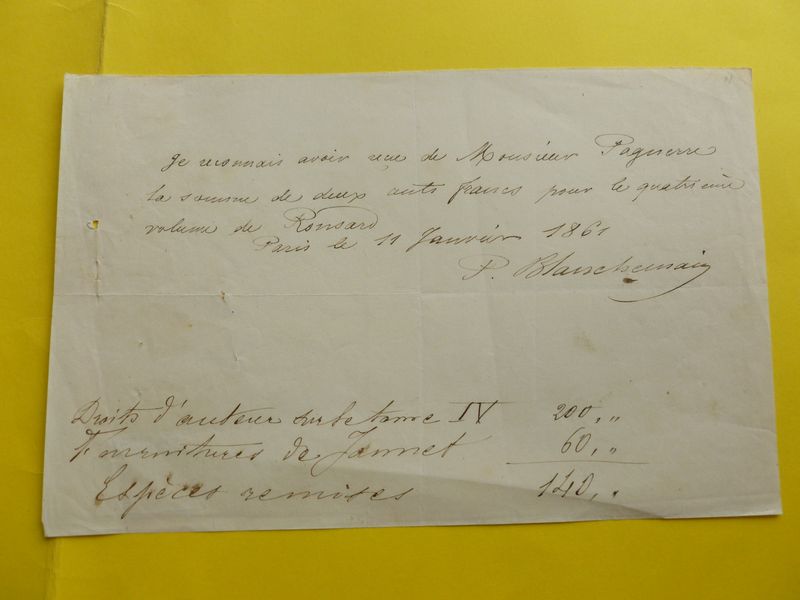 Je reconnais avoir reçu de Monsieur Pagnerre
la somme de deux cents francs pour le quatrième
volume de Ronsard
Paris le 11 Janvier 1861
P. Blanchemain
Droits d'auteur sur le tome IV 200,"
Fournitures de Jannet 60,"
Espèces remises 140,"